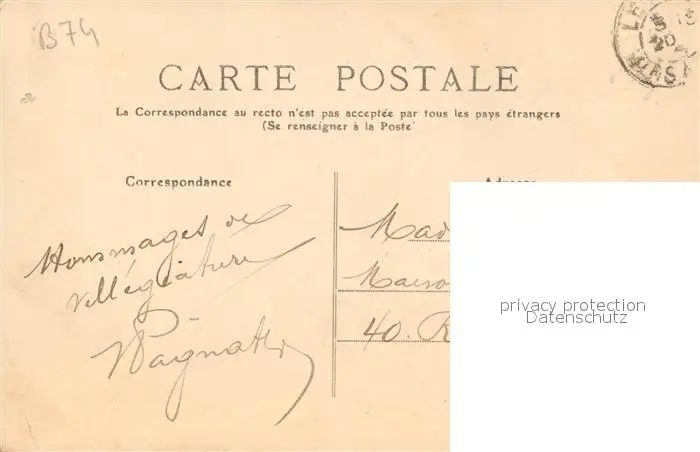 B74
CARTE POSTALE
La Correspondance au recto n'est pas acceptée par tous les pays étrangers
(Se renseigner à la Poste
Correspondance
Hommages de
villégiature
Mad
Maiso
40. R
privacy protection
Datenschutz